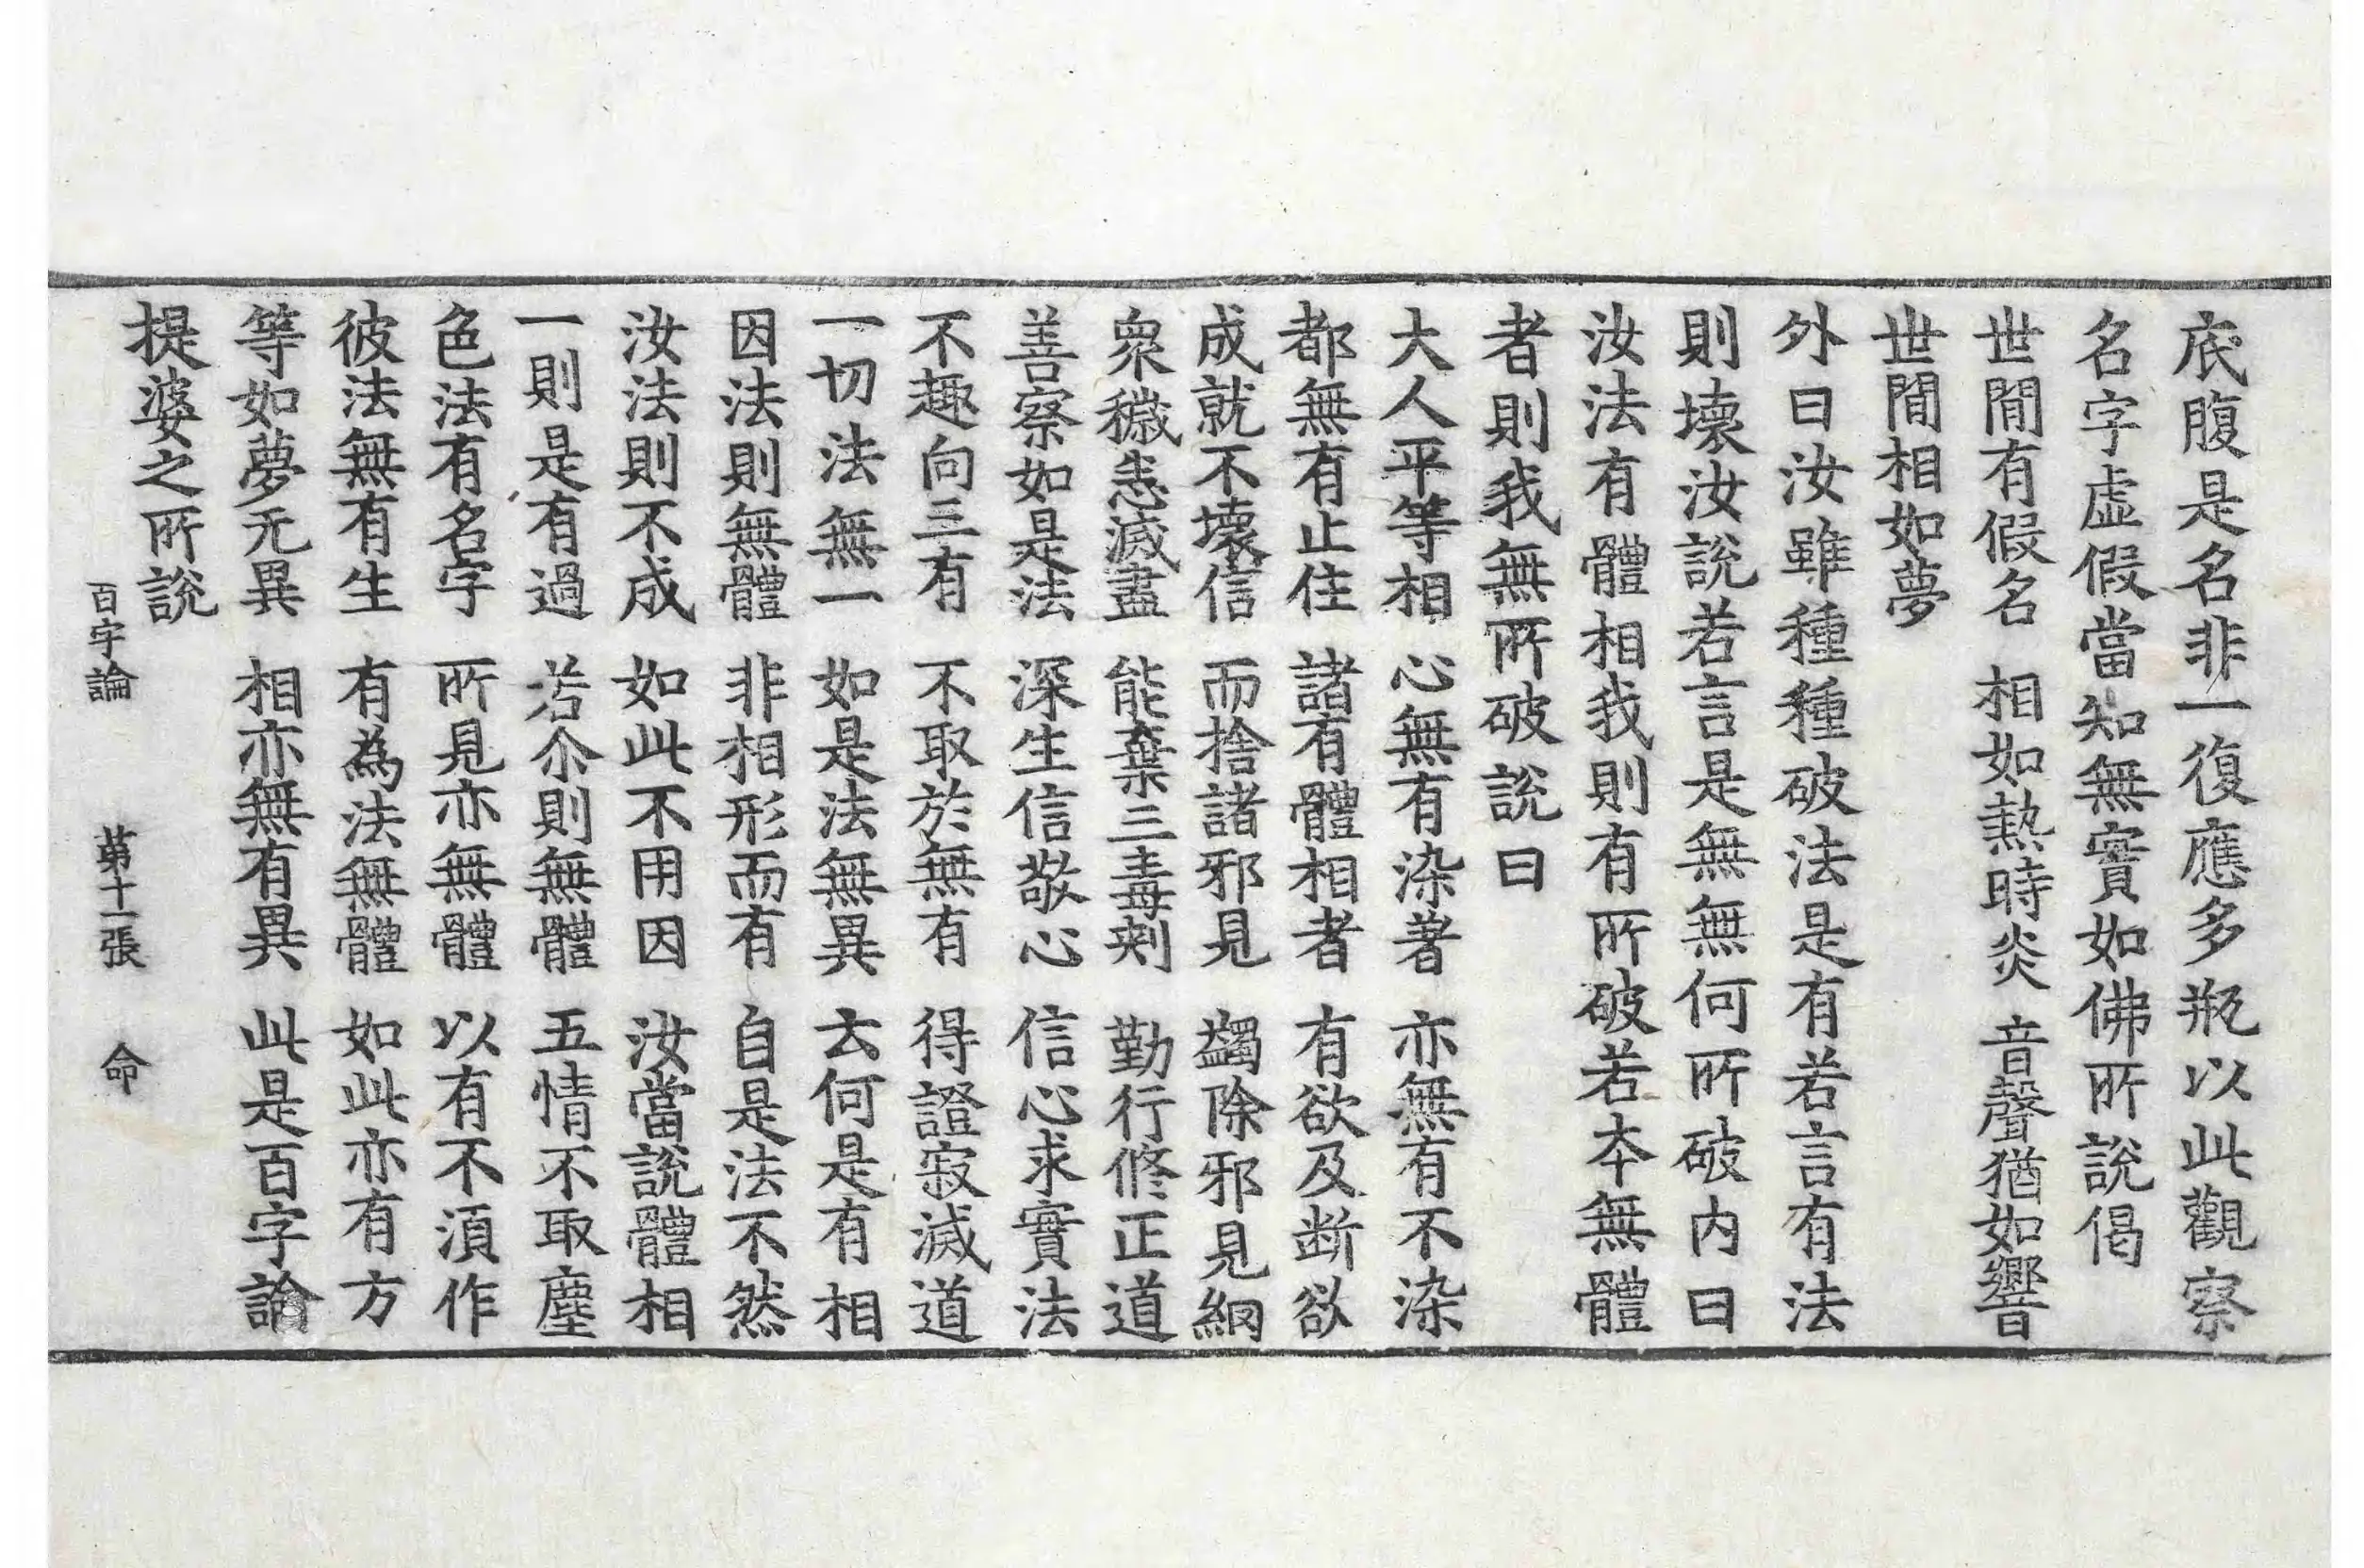 底腹是名非一復應多瓶以此觀察
名字虛假當知無實如佛所說偈
世閒有假名 相如熱時炎 音聲猶如響
世閒相如夢
外曰汝雖種種破法是有若言有法
則壞汝說若言是無無何所破内曰
汝法有體相我則有所破若夲無體
者則我無所破說曰
大人平等相 心無有染著 亦無有不染
都無有止住 諸有體相者 有欲及断欲
成就不壞信 而捨諸邪見 蠲除邪見網
衆穢恚滅盡 能棄三毒刺 勤行修正道
善察如是法 深生信敬心 信心求實法
不趣向三有 不取於無有 得證寂滅道
一切法無一 如是法無異 云何是有相
因法則無體 非相形而有 自是法不然
汝法則不成 如此不用因 汝當說體相
一則是有過 若尒則無體 五情不取塵
色法有名字 所見亦無體 以有不湏作
彼法無有生 有為法無體 如此亦有方
等如夢无異 相亦無有異 此是百字論
提婆之所說
百字論 苐十一張 命